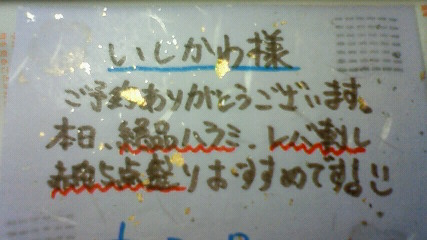 いしかわ様
ご予約ありがとうございます。
本日、絶品ハラミ、レバ刺し
赤肉5点盛りおすすめです!